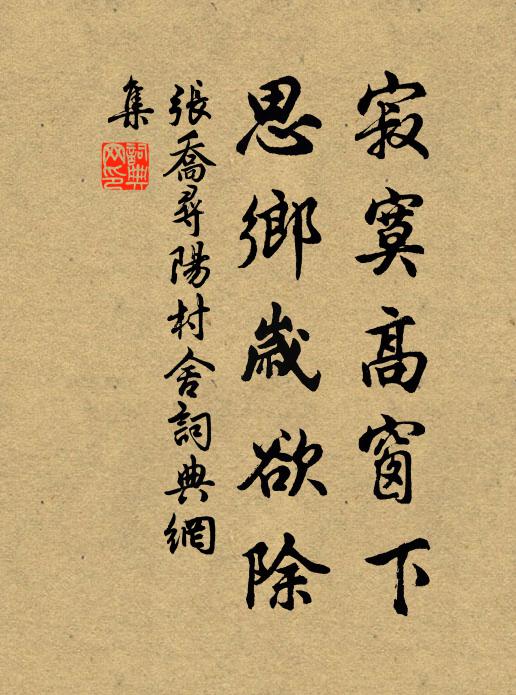 寂寞高窗下
思鄉歲欲除
張喬尋陽村舍詞典網
集
詞典網印